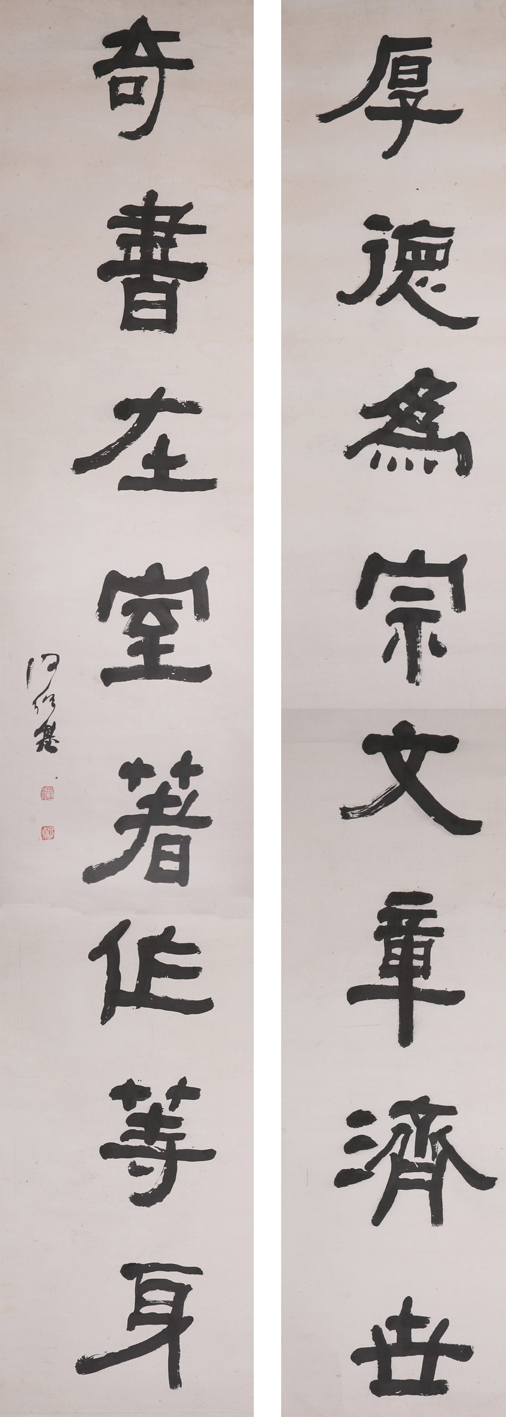 厚德為宗文章濟世
奇書在室著作等身
何紹基